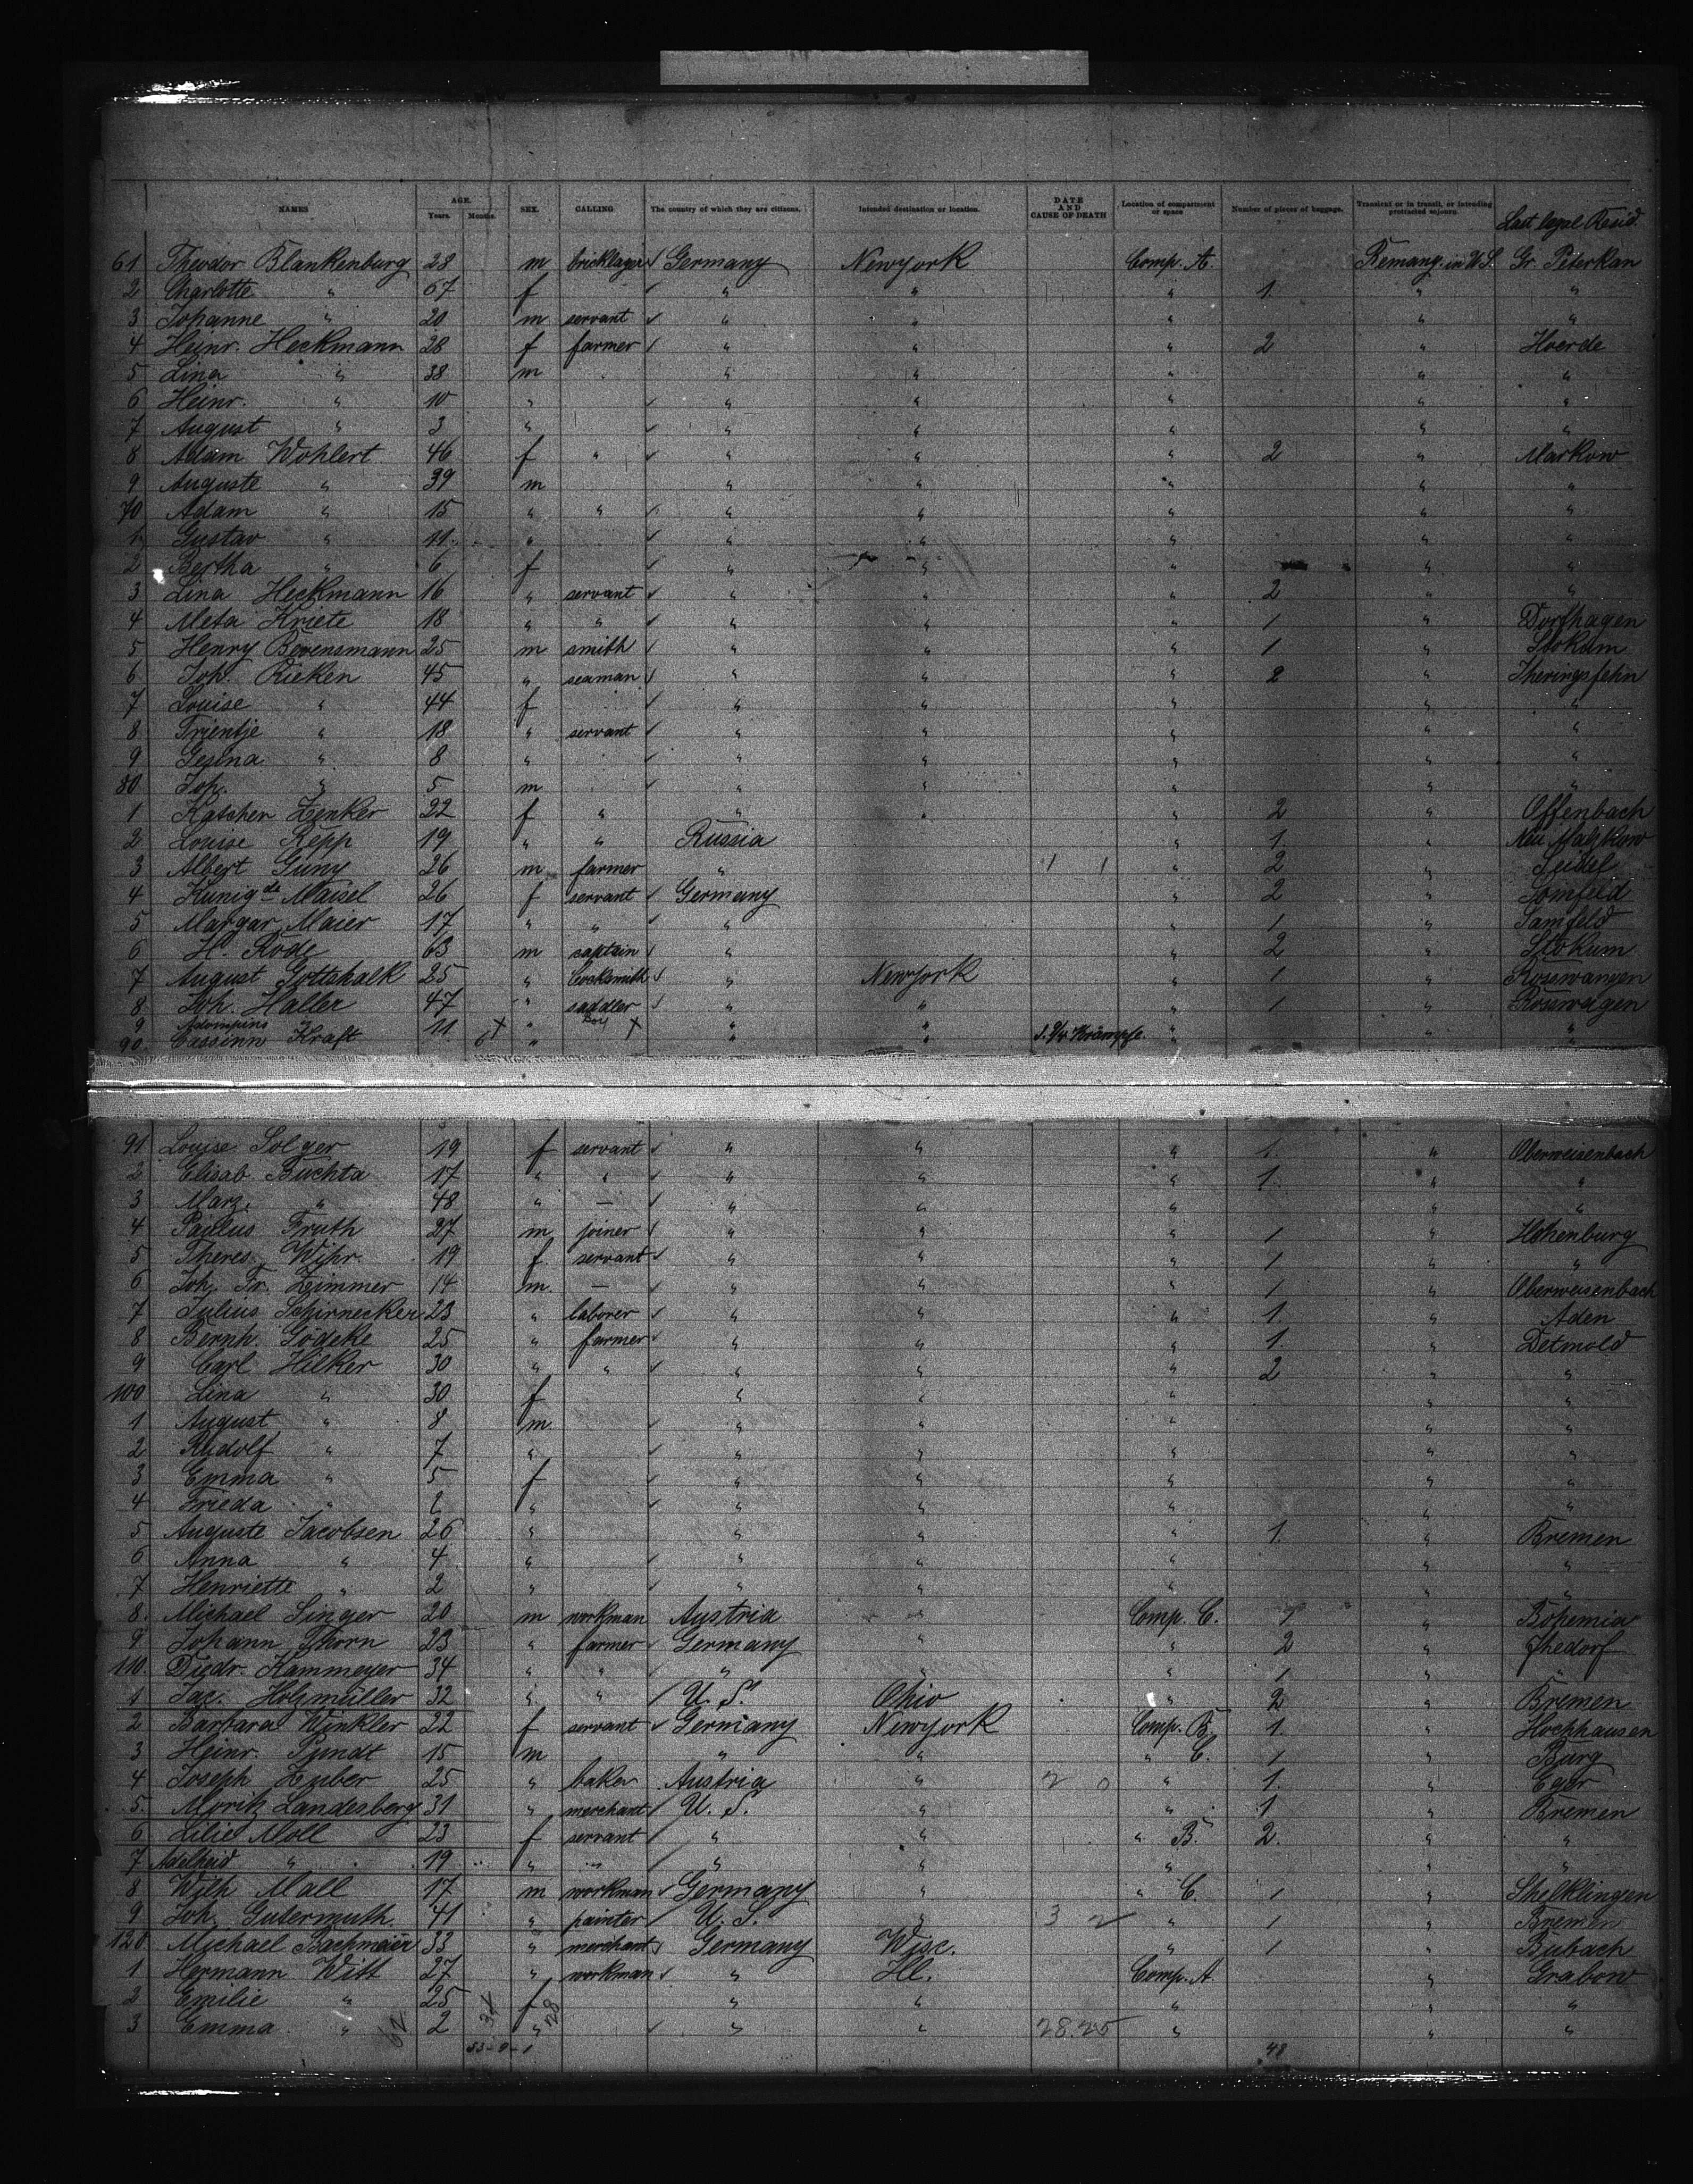 NAMES AGE. Years. Months. SEX. CALLING The country of which they are citizens. Intended destination or location. DATE AND CAUSE OF DEATH Location of compartment or space Number of pieces of baggage. Transient or in transit, or intending protracted sojourn. Last legal Resid.
61 Theodor Blankenburg 28 m bricklayer Germany Newyork Comp. A. Remang. in U.S. Gr. Peterkan
2 Charlotte " 67 f " " " 1 " "
3 Johanne " 20 m servant " " " " "
4 Heinr. Heckmann 28 f farmer " " " 2 " Hoerde
5 Lina " 38 m " " " " "
6 Heinr. " 10 " " " " " "
7 August " 3 " " " " " "
8 Adam Wohlert 46 f " " " " 2 " Markow
9 Auguste " 39 m " " " " "
70 Adam " 15 " " " " " " "
1 Gustav " 11 " " " " " "
2 Bertha " 6 f " " " " "
3 Lina Heckmann 16 " servant " " " 2 " "
4 Meta Kriete 18 " " " " " 1 " Dorfhagen
5 Henry Bevensmann 25 m smith " " " 1 " Stokum
6 Joh. Rieken 45 " seaman " " " 2 " Iheringsfehn
7 Louise " 44 f " " " " "
8 Trientje " 18 " servant " " " " "
9 Gesina " 8 " " " " " "
80 Joh. " 5 m " " " " "
1 Katchen Zenker 22 f " " " " 2 " Offenbach
2 Louise Repp 19 " " Russia " 1 "
3 Albert Guny 26 m farmer " " 2 " Seidel
4 Kunigde Maisel 26 f servant Germany " 2 "
5 Margar. Maier 17 " " " " 1 "
6 H. Rode 63 m captain " " 2 " Stokum
7 August Gottshalk 25 " locksmith " Newyork " 1 " Rosswangen
8 Joh. Haller 47 " saddler " " " 1 "
9 " Boy " " " "
90. Cassinn Kraft 11 " " " Krämpfe. " " "
91 Louise Solger 19 f servant " " " 1. " Oberweisenbach
2 Elisab. Buchta 17 " " " " " 1. " "
3 Marg. " 48 " — " " " " "
4 Paulus Fruth 27 m joiner " " " 1 " Hohenburg
5 Theres. Wihr. 19 f. servant " " " 1 " "
6 Joh. Fr. Zimmer 14 m. — " " " 1 " Oberweisenbach
7 Julius Schirnecker 23 " laborer " " " 1. " Aden
8 Bernh. Gödeke 25 " farmer " " " 1. " Detmold
9 Carl Hilker 30 " " " " " 2 " "
100 Lina " 30 f " " " " "
1 August " 8 m. " " " " "
2 Rudolf " 7 " " " " " "
3 Emma " 5 f " " " " "
4 Frieda " " " " " " "
5 Auguste Jacobsen 26 " " " " 1. " Bremen
6 Anna " 4 " " " " " "
7 Henriette " 2 " " " " " "
8. Michael Singer 20 m workman Austria " Comp. C. 1 " Bohemia
9 Johann Thorn 23 " farmer Germany " " 2 " Ihedorf
110. Diedr. Kammeyer 34 " " " " " 1 " "
1 Jac. Holzmüller 32 " " U. S. Ohio " 2 " Bremen
2 Barbara Winkler 22 f servant Germany Newyork Comp. B. 1. " Hochhausen
3 Heinr. Pundt 15 m " " " C. 1 " Burg
4 Joseph Zuber 25 " baker Austria " 2 0 " 1. " Eger
5. Moritz Landesberg 31 " merchant U. S. " " 1 " Bremen
6 Lilie Moll 23 f servant " " " B. 2. " "
7 Adelheid " 19 " " " " " " "
8 Wilh Mall 17 m workman Germany " " C. 1 " Shelklingen
9 Joh. Gutermuth. 41 " painter U. S. " 3 2 " 1 " Bremen
120. Michael Bachmaier 33 " merchant Germany Wisc. " 1 " Bubach
1 Hermann Witt 27 " workman " Ill. Comp. A. " Grabow
2 Emilie " 25 f " " " " "
3 Emma " 2 " " " 28.25 " " "
62 34 28
53-9-1 48